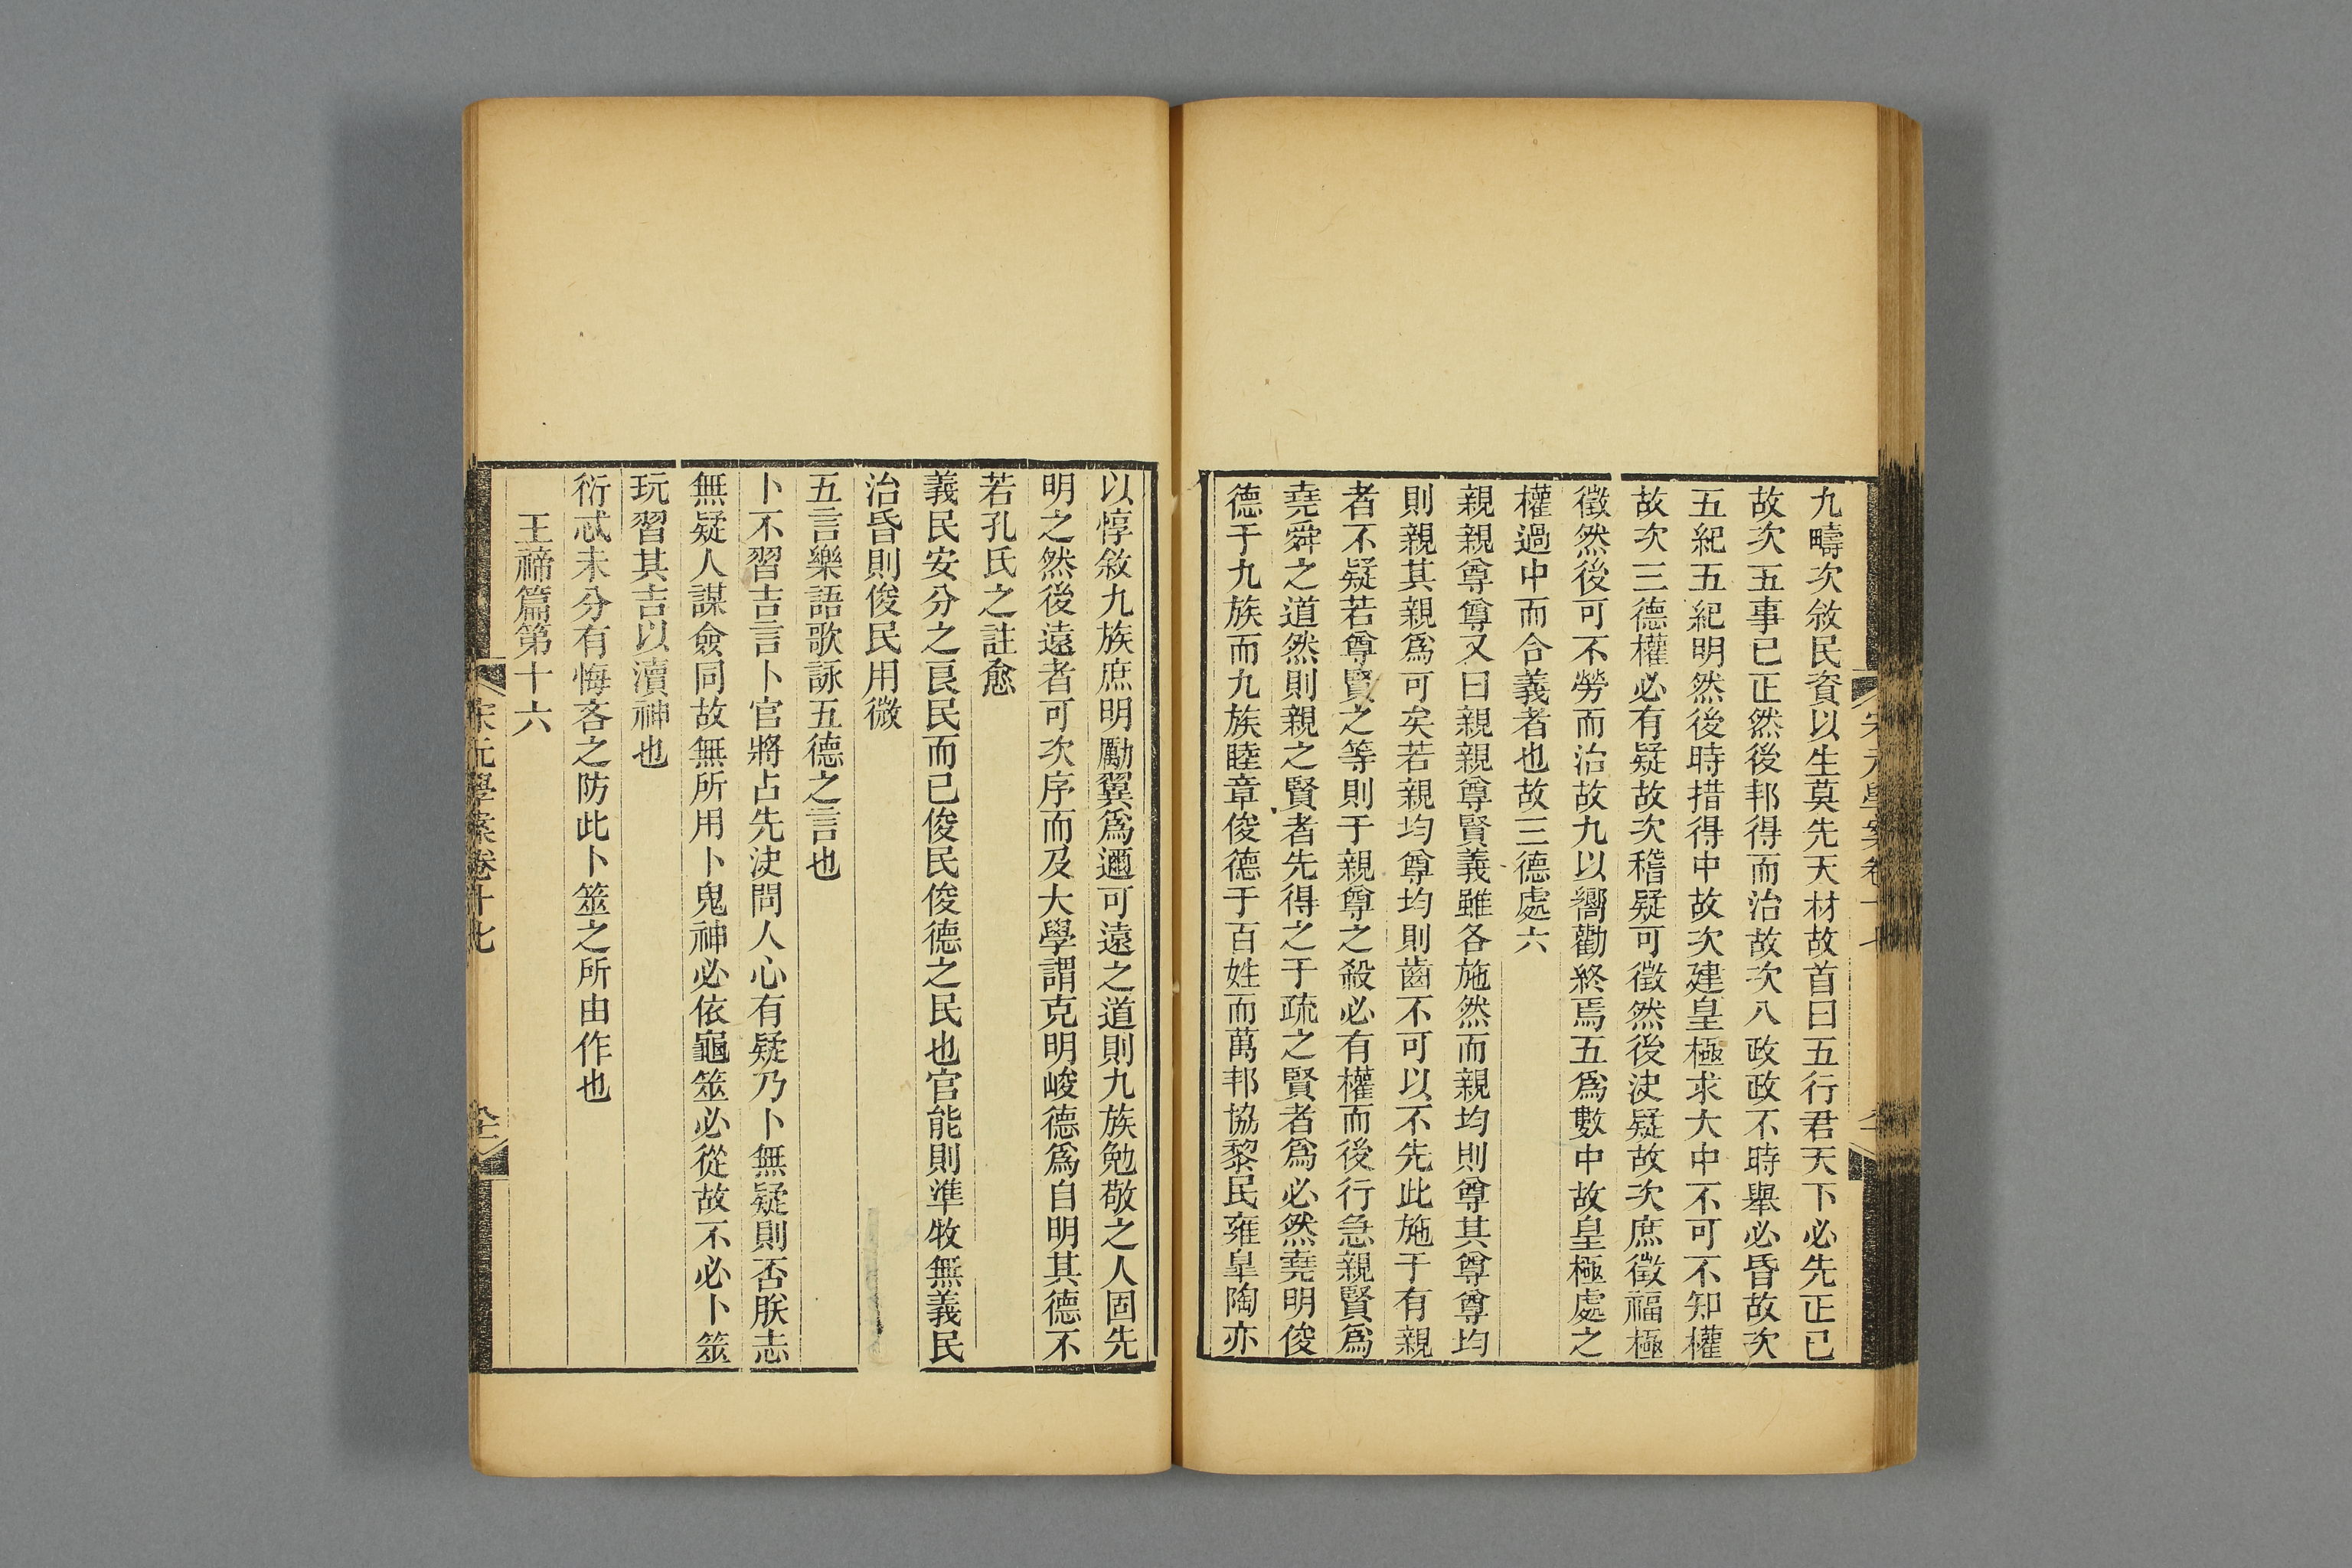 九疇次敘民資以生莫先天材故首曰五行君天下必先正已
故次五事已正然後邦得而治故次八政政不時舉必昏故次
五紀五紀明然後時措得中故次建皇極求大中不可不知權
故次三德權必有疑故次稽疑可徵然後決疑故次庶徵福極
徵然後可不勞而治故九以嚮勸終焉五爲數中故皇極處之
權過中而合義者也故三德處六
親親尊尊又曰親親尊賢義雖各施然而親均則尊其尊尊均
則親其親爲可矣若親均尊均則齒不可以不先此施于有親
者不疑若尊賢之等則于親尊之殺必有權而後行急親賢爲
堯舜之道然則親之賢者先得之于疏之賢者爲必然堯明俊
德于九族而九族睦章俊德于百姓而萬邦協黎民雍皐陶亦
以惇敘九族庶明勵翼爲邇可遠之道則九族勉敬之人固先
明之然後遠者可次序而及大學謂克明峻德爲自明其德不
若孔氏之註愈
義民安分之良民而已俊民俊德之民也官能則準牧無義民
治昏則俊民用微
五言樂語歌詠五德之言也
卜不習吉言卜官將占先決問人心有疑乃卜無疑則否朕志
無疑人謀僉同故無所用卜鬼神必依龜筮必從故不必卜筮
玩習其吉以瀆神也
衍忒未分有悔吝之防此卜筮之所由作也
王禘篇第十六
宋元學案卷十七